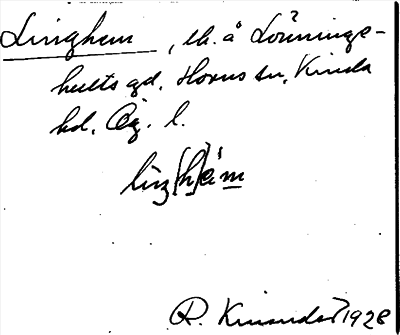 Linghem, lh. å Lönninge-
hults gd. Horns sn, Kinda
hd. Ög. l.
liŋ(h)èm
R. Kinander 1928